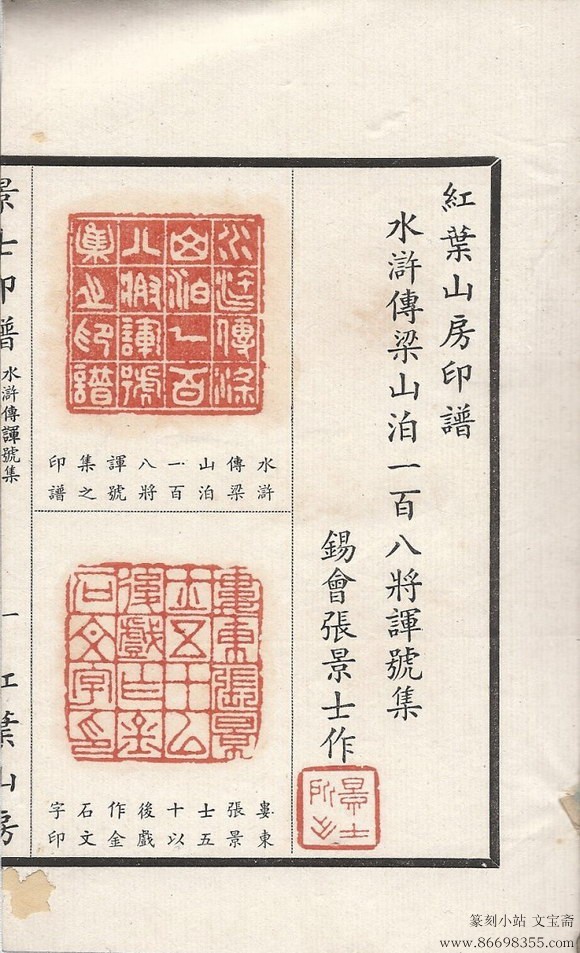 紅葉山房印譜
水滸傳梁山泊一百八將諢號集
錫會張景士作
景士所作
水滸傳梁
山泊一百
八將諢號
集之印譜
水滸
傳梁
山泊
一百
八將
諢號
集之
印譜
婁東張景
士五十以
後戲作金
石文字印
婁東
張景
士五
十以
後戲
作金
石文
字印
景士印譜
水滸傳諢號集
一
紅葉山房
篆刻小站 文宝斋
www.86698355.com